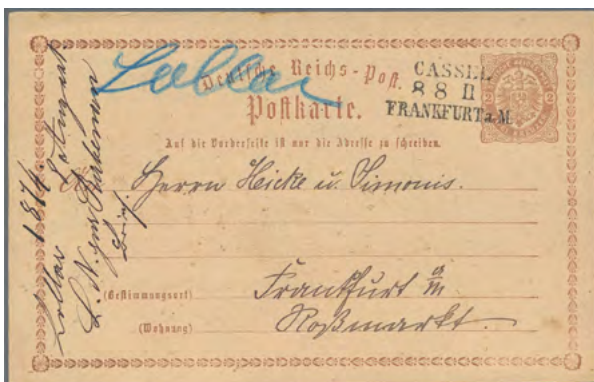 Lollar
Deutsche Reichs-Post.
Postkarte.
CASSEL
8 8 II
FRANKFURT a.M.
Auf die Vorderseite ist nur die Adresse zu schreiben.
An Herrn Heicke u. Simonis.
(Bestimmungsort) Frankfurt a/M
(Wohnung) Roßmarkt.
Lollar 1874 August